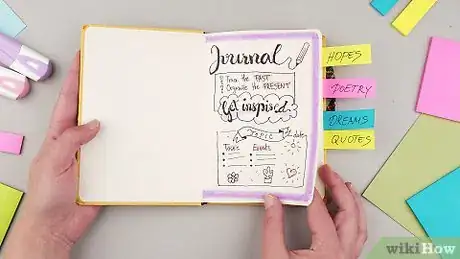 Journal
Track the PAST
Organize the PRESENT
Get inspired
TOPIC
The date
Tasks
Events
HOPES
POETRY
DREAMS
QUOTES
wikiHow